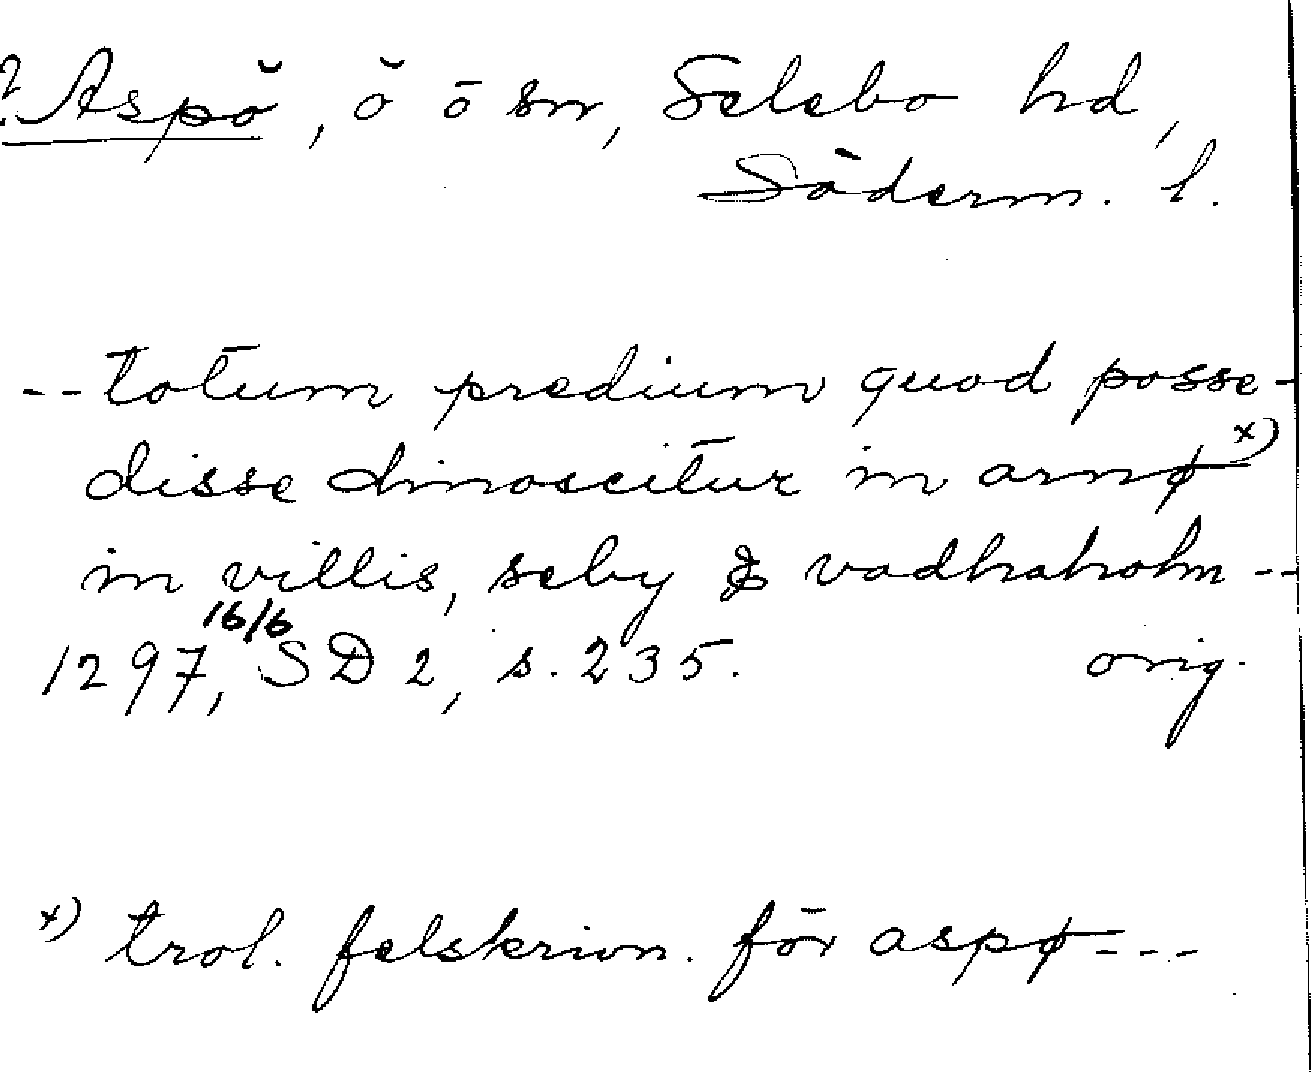 ? Aspö, ö o sn, Selebo hd,
Söderm. l.
-- totum predium quod posse-
disse dinoscitur in arnø x)
in villis, seby & vadhaholm --
16/6
1297, SD 2, s. 235. orig.
x) trol. felskrivn. för aspø ---